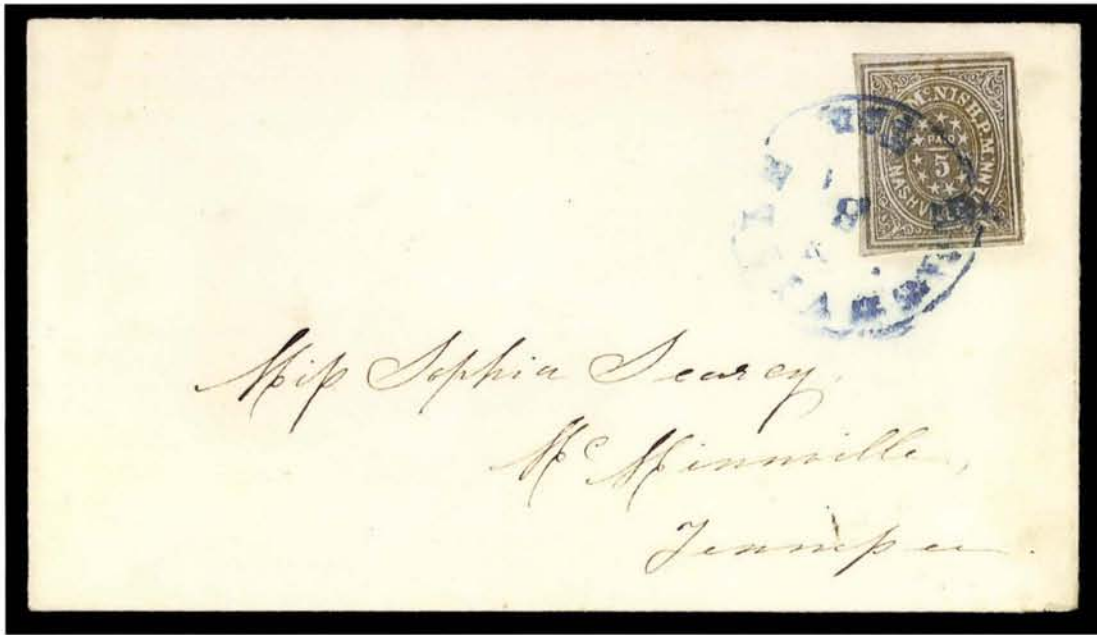 McNISH. P.M.
PAID
5
NASHVILLE TENN
NASHVILLE
8
Miss Sophia Searcy,
McMinnville,
Tennessee.